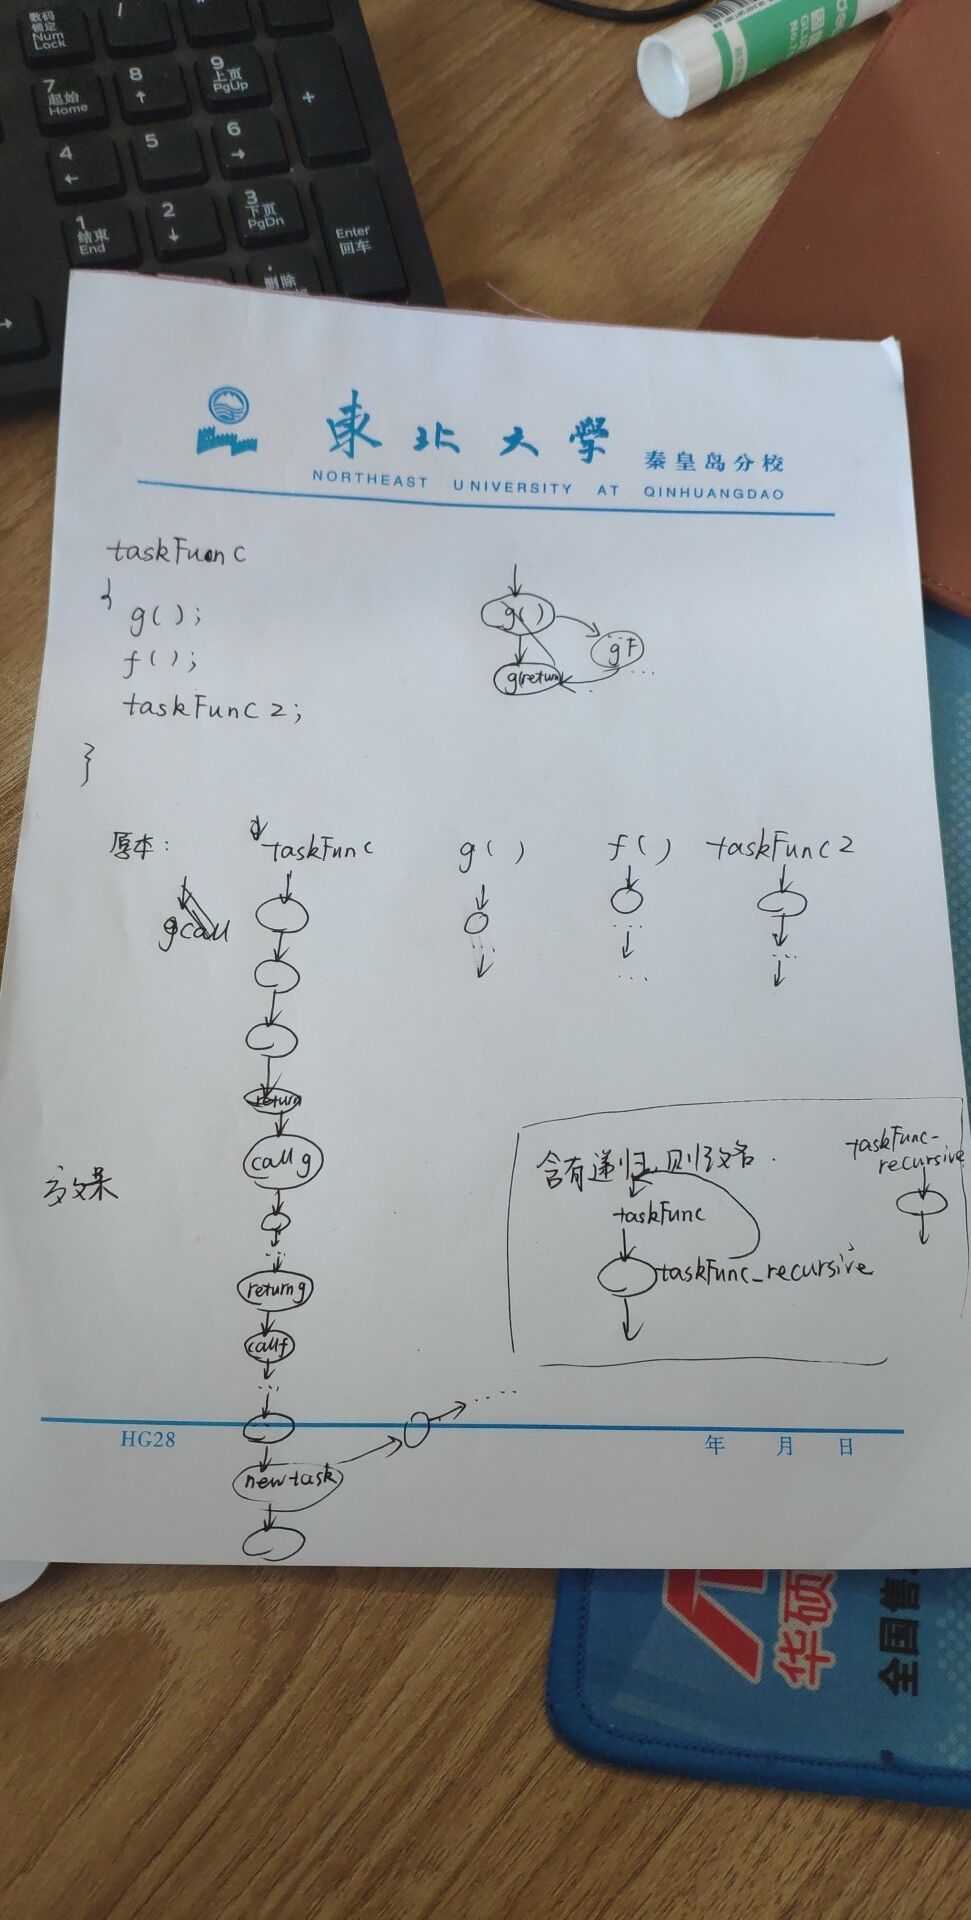 数码
锁定
Num
Lock
/
7
起始
Home
8
↑
9
上页
PgUp
+
4
←
5
6
→
1
结束
End
2
↓
3
下页
PgDn
Enter
回车
删除
東北大學
秦皇岛分校
NORTHEAST UNIVERSITY AT QINHUANGDAO
taskFunc
{
g();
f();
taskFunc2;
}
g()
gF
g(return)
原本:
taskFunc
g()
f()
taskFunc2
gcall
return
call g
return g
call f
new task
效果
含有递归,则改名.
taskFunc
taskFunc_recursive
taskFunc-
recursive
HG28
年 月 日
华硕
全国售